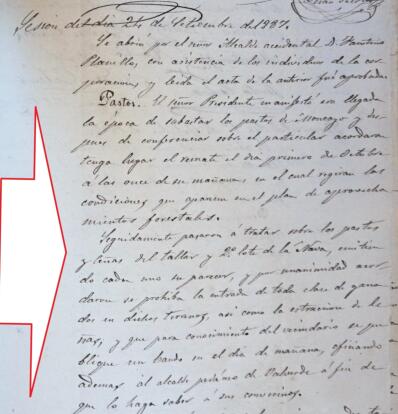 Sesion del dia 24 de Setiembre de 1887.
Se abrió por el señor Alcalde accidental D. Faustino
con asistencia de los individuos de la cor-
poracion, y leida el acta de la anterior fué aprobada.
Pastos. El señor Presidente manifestó era llegada
la época de subastar los pastos de Moncayo y des-
pues de conferenciar sobre el particular acordaron
tenga lugar el remate el dia primero de Octubre
a las once de su mañana, en el cual regiran las
condiciones que aparecen en el plan de aprovecha-
mientos forestales.
Seguidamente pasaron á tratar sobre los pastos
y leñas del tallar y 2º lote de la Nava, emitien-
do cada uno su parecer, y por unanimidad acor-
daron se prohiba la entrada de toda clase de gana-
dos en dichos terrenos, asi como la estracion de le-
ñas, y que para conocimiento del vecindario se pu-
blique un bando en el dia de mañana, oficiando
ademas al alcalde pedáneo de á fin de
que lo haga saber á sus convecinos.